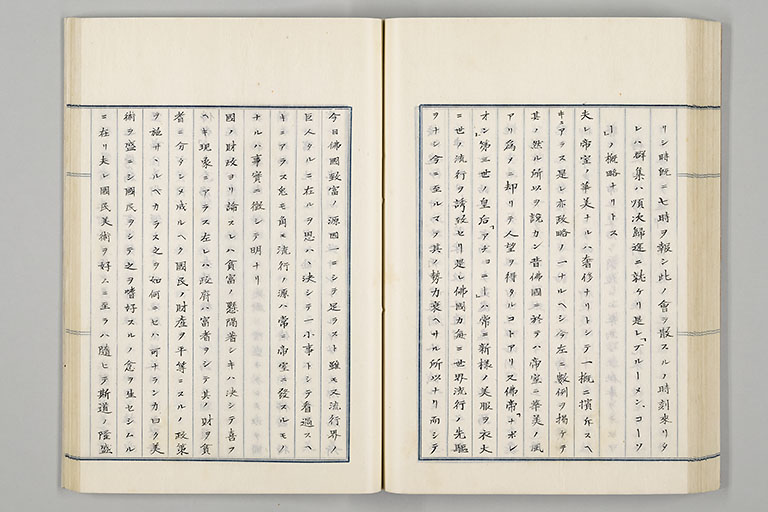 リシ時既ニ七時ヲ報シ此ノ會ヲ散スルノ時刻來リタ
レハ群集ハ順次歸途ニ就ケリ是レ「ブルーメン、コーソ
ー」ノ概略ナリトス
夫レ帝室ノ華美ナルハ奢侈ナリトシテ一概ニ擯斥スヘ
キニアラス是レ亦政略ノ一ナルヘシ今左ニ數例ヲ掲ケテ
其ノ然ル所以ヲ說カン昔佛國ニ於テハ帝室ニ華美ノ風
アリ爲メニ却リテ人望ヲ得タルコトアリ又佛帝「ナポレ
オン」第三世ノ皇后「アチョニー」ハ常ニ新樣ノ美服ヲ衣大
ニ世ノ流行ヲ誘起セリ是レ佛國カ毎ニ世界流行ノ先驅
ヲナシ今ニ至ルマテ其ノ勢力衰ヘサル所以ナリ而シテ
今日佛國致富ノ源因一ニシテ足ラスト雖モ又流行界ノ
巨人タルニ在ルヲ思ハヽ決シテ一小事トシテ看過スヘ
キニアラス兎モ角モ流行ノ源ハ常ニ帝室ニ發スルモノ
ナルハ事實ニ徵シテ明ナリ
國ノ財政ヨリ論スレハ貧富ノ懸隔著シキハ決シテ喜フ
ヘキ現象ニアラス左レハ政府ハ富者ヲシテ其ノ財ヲ貧
者ニ分タシメ成ルヘク國民ノ財產ヲ平等ニスルノ政策
ヲ施サヽルヘカラス之ヲ如何ニセハ可ナランカ曰ク美
術ヲ盛ニシ國民ヲシテ之ヲ嗜好スルノ念ヲ生セシムル
ニ在リ夫レ國民美術ヲ好ムニ至ラハ隨ヒテ斯道ノ隆盛